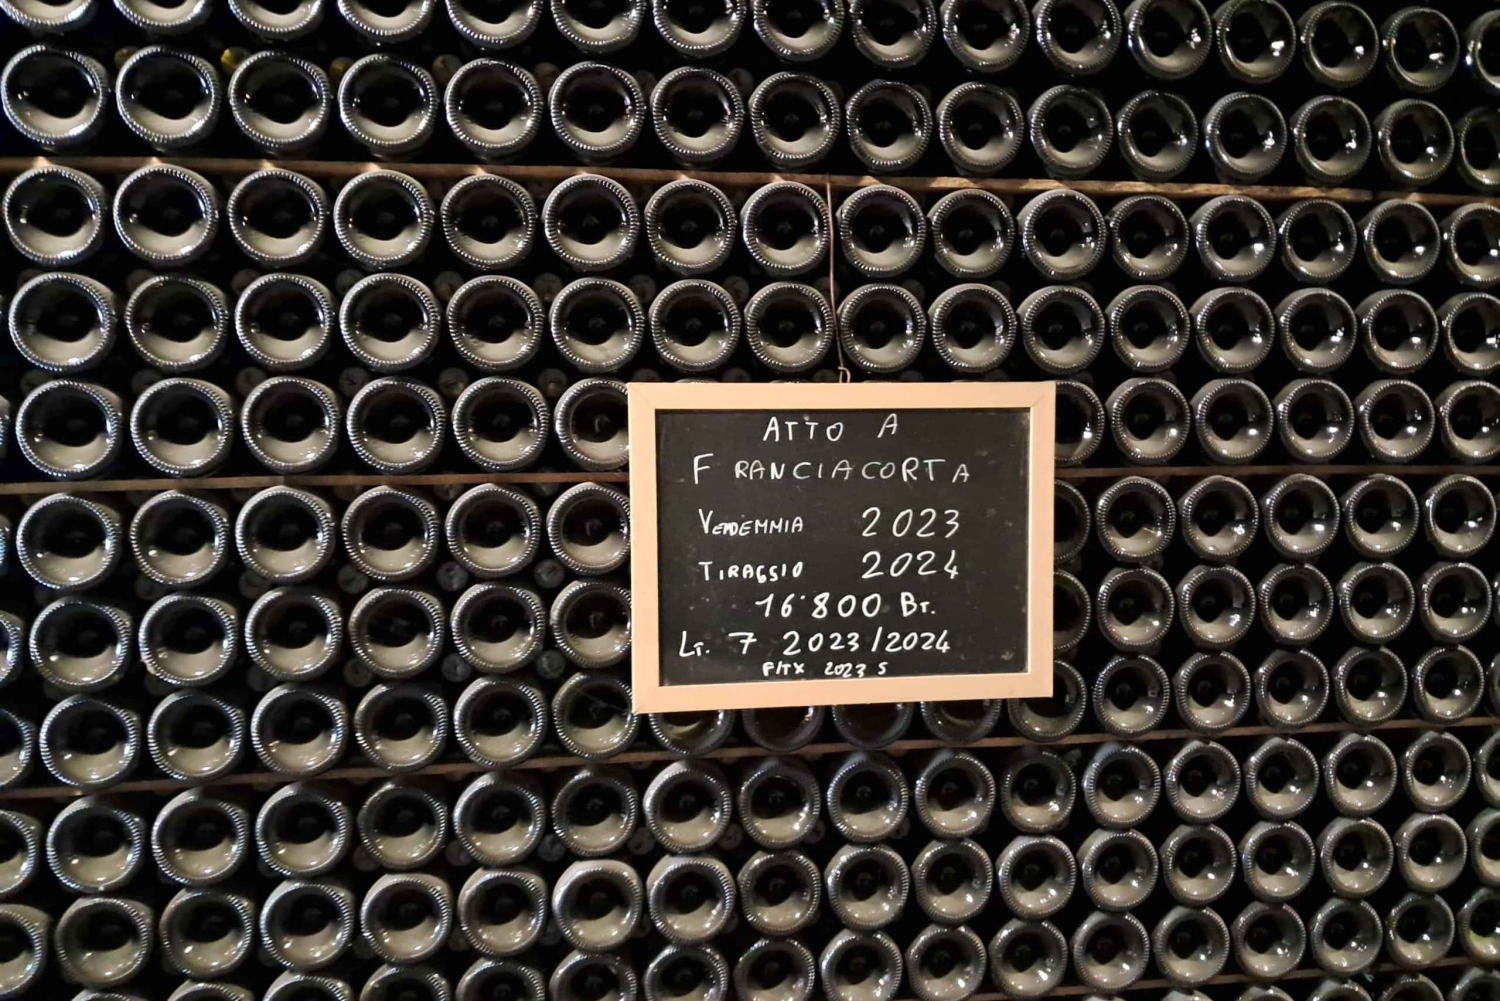 ATTO A
FRANCIACORTA
VENDEMMIA 2023
TIRAGGIO 2024
16'800 BT.
LT. 7 2023/2024
2023 S